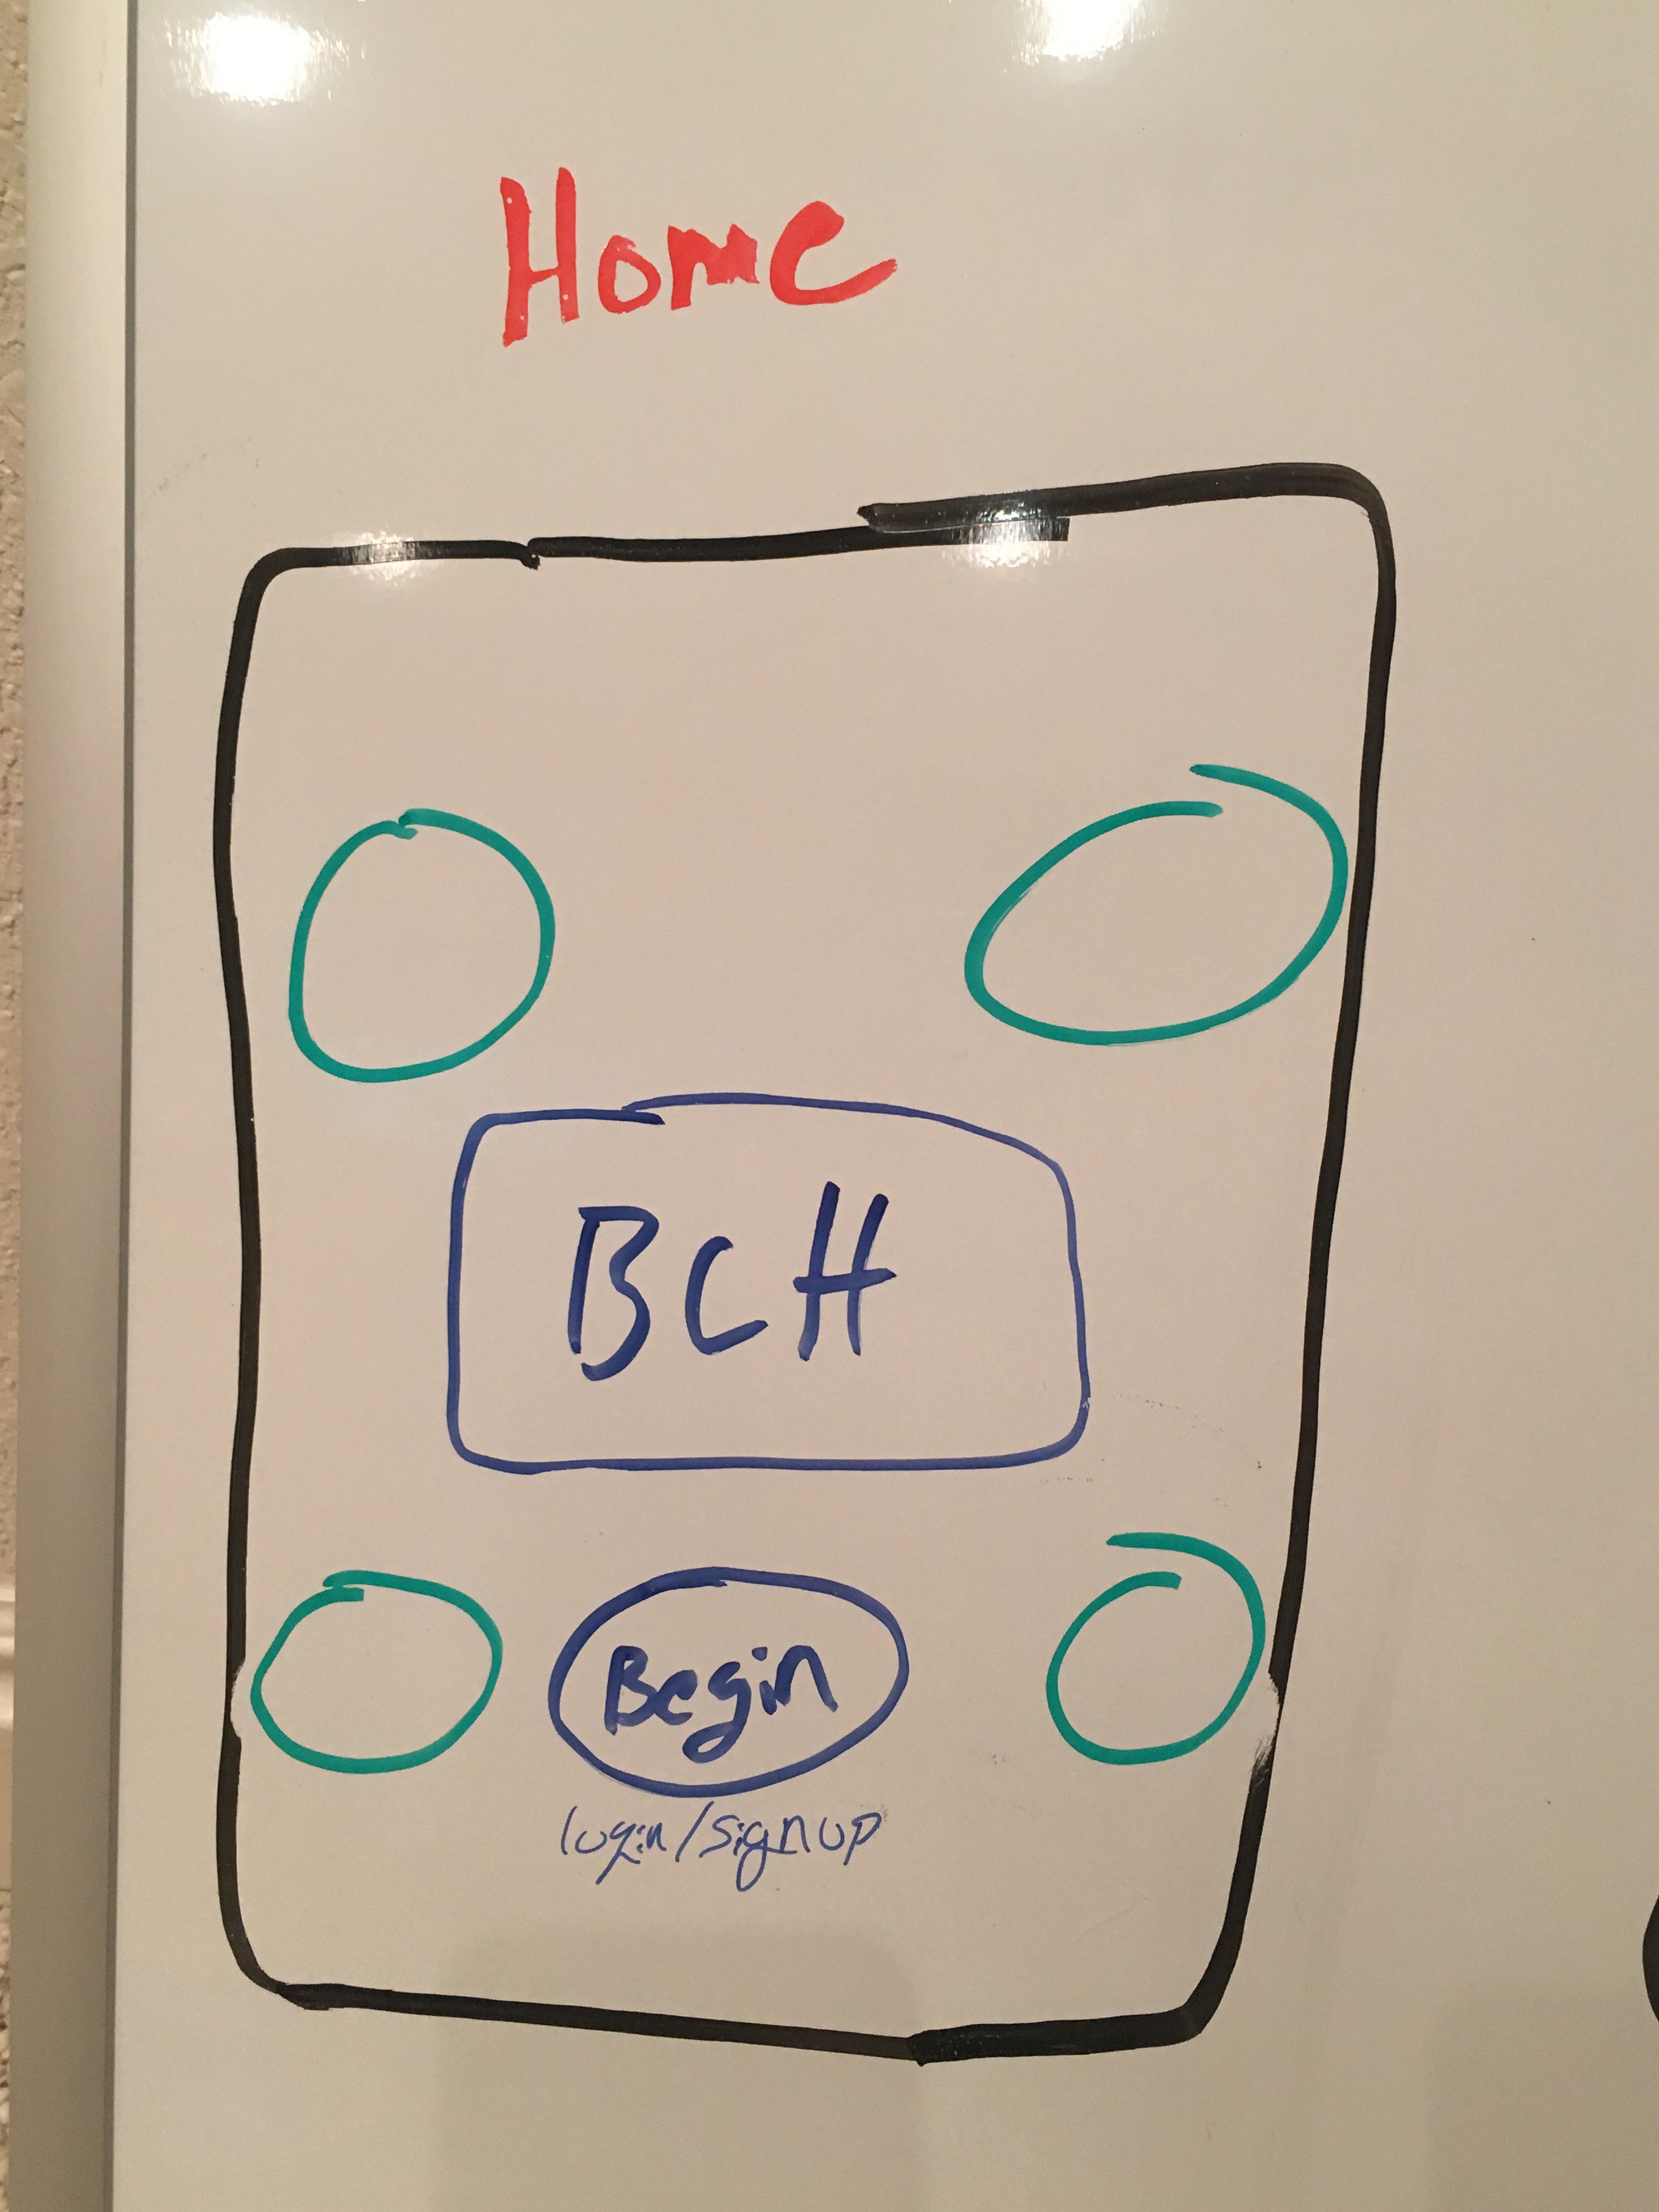 Home
BCH
Begin
login/signup